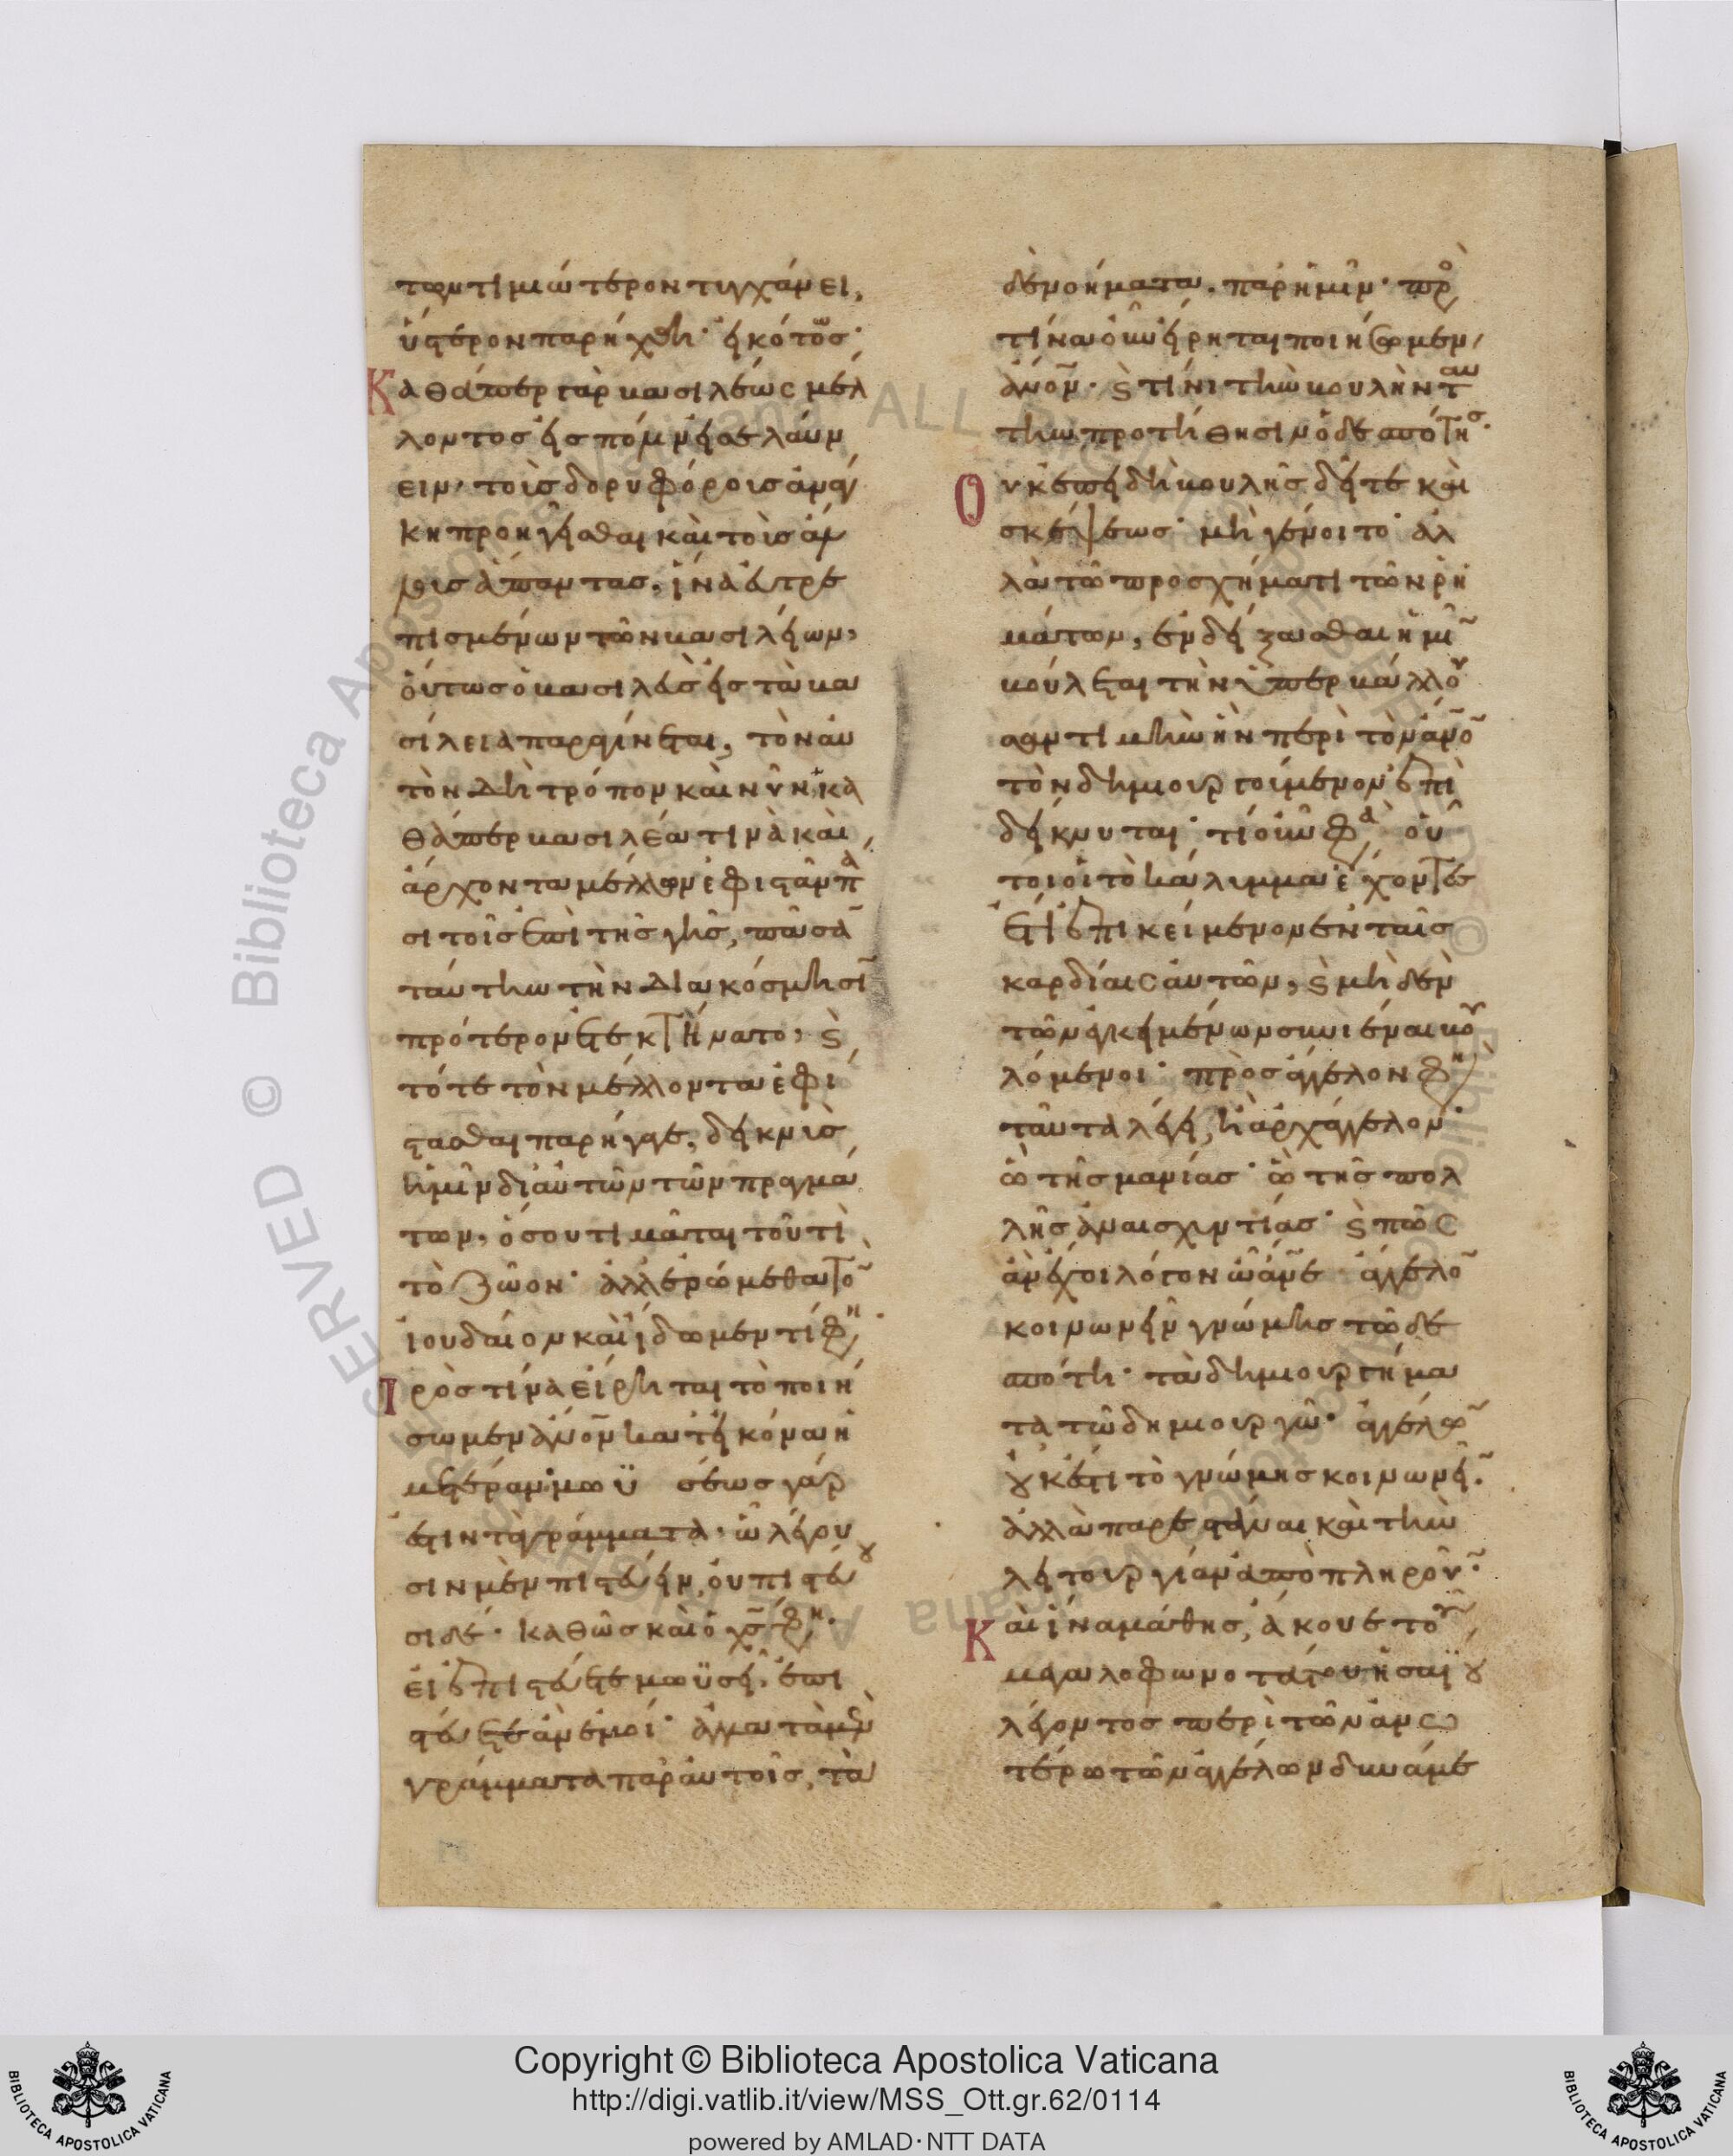 των τιμιώτερον τυγχάνει,
ὕστερον παρήχθη· εἰκότως·
Καθάπερ γὰρ βασιλέως μέλ
λοντος εἰς πόλιν εἰσελαύν
ειν, τοὺς δορυφόρους ἀνάγ
κη προηγεῖσθαι καὶ τοὺς ἄλ
λους ἅπαντας, ἵνα εὐτρε
πισμένων τῶν βασιλείων,
οὕτως ὁ βασιλεὺς εἰς τὰ βα
σίλεια παραγίνεται, τὸν αὐ
τὸν δὴ τρόπον καὶ νῦν κα
θάπερ βασιλέα τινὰ καὶ
ἄρχοντα μέλλων ἐφιστᾶν πᾶ
σι τοῖς ἐπὶ τῆς γῆς, πᾶσα
ταύτην τὴν διακόσμησι
πρότερον ἐτεκτήνατο, ϛ
τότε τὸν μέλλοντα ἐφί
στασθαι παρήγαγε, δεικνὺς
ἡμῖν δι' αὐτῶν τῶν πραγμά
των, ὅσου τιμᾶται τουτὶ
τὸ ζῶον· ἀλλ' ἐρώμεθα το
ἰουδαῖον καὶ ἴδωμεν τί φη
Πρὸς τίνα εἴρηται τὸ ποιή
σωμεν ἄνον κατ' εἰκόνα ἡ
μετέραν· μωϋσέως γάρ
ἐστιν τὰ γράμματα· ᾧ λέγου
σιν μὲν πιστεύειν, οὐ πιστεύου
σι δέ· καθὼς καὶ ὁ χς φη·
εἰ ἐπιστεύετε μωϋσεῖ, ἐπι
στεύετε ἂν ἐμοί· ἀλλὰ τὰ μὲν
γράμματα παρ' αὐτοῖς, τὰ
δὲ νοήματα, παρ' ἡμῖν· πρὸ
τίνα οὖν εἴρηται ποιήσωμεν
ἄνον· ϛ τίνι τὴν βουλὴν ταύ
την προτίθησιν ὁ δεσπότης·
Οὐκ ἐπειδὴ βουλῆς δεῖται καὶ
σκέψεως· μὴ γένοιτο· ἀλ
λὰ τῷ προσχήματι τῶν ῥη
μάτων, ἐνδείξασθαι ἡμῖ
βούλεται τὴν ὑπερβάλλου
σαν τιμὴν ἣν περὶ τὸν ἄνο
τὸν δημιουργούμενον ἐπι
δείκνυται· τί οὖν φα οὗ
τοι οἱ τὸ κάλυμμα ἔχοντες
ἔτι ἐπικείμενον ἐν ταῖς
καρδίαις αὐτῶν, ϛ μηδὲν
τῶν ἐγκειμένων συνιέναι βου
λόμενοι· πρὸς ἄγγελον φη
ταῦτα λέγει, ἢ ἀρχάγγελον·
ὢ τῆς μανίας· ὢ τῆς πολ
λῆς ἀναισχυντίας· ϛ πῶς
ἂν ἔχοι λόγον ὦ ἄνε ἄγγελο
κοινωνεῖν γνώμης τῷ δε
σπότη· τὰ δημιουργήμα
τα τῷ δημιουργῷ· ἀγγέλω
οὐκ ἔστι τὸ γνώμης κοινωνεῖ·
ἀλλὰ παρεστάναι καὶ τὴν
λειτουργίαν ἀποπληροῦν·
Καὶ ἵνα μάθης, ἄκουε τοῦ
μεγαλοφωνοτάτου ἡσαΐου
λέγοντος περὶ τῶν ἀνω
τέρω τῶν ἀγγέλων δυνάμε
Copyright © Biblioteca Apostolica Vaticana
http://digi.vatlib.it/view/MSS_Ott.gr.62/0114
powered by AMLAD·NTT DATA
BIBLIOTECA APOSTOLICA VATICANA
BIBLIOTECA APOSTOLICA VATICANA